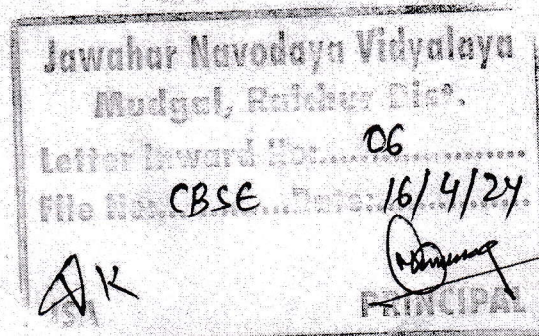 Jawahar Navodaya Vidyalaya
Mudgal, Raichur Dist.
Letter Inward No:........06........
File No....CBSE....Date:16/4/24
PRINCIPAL